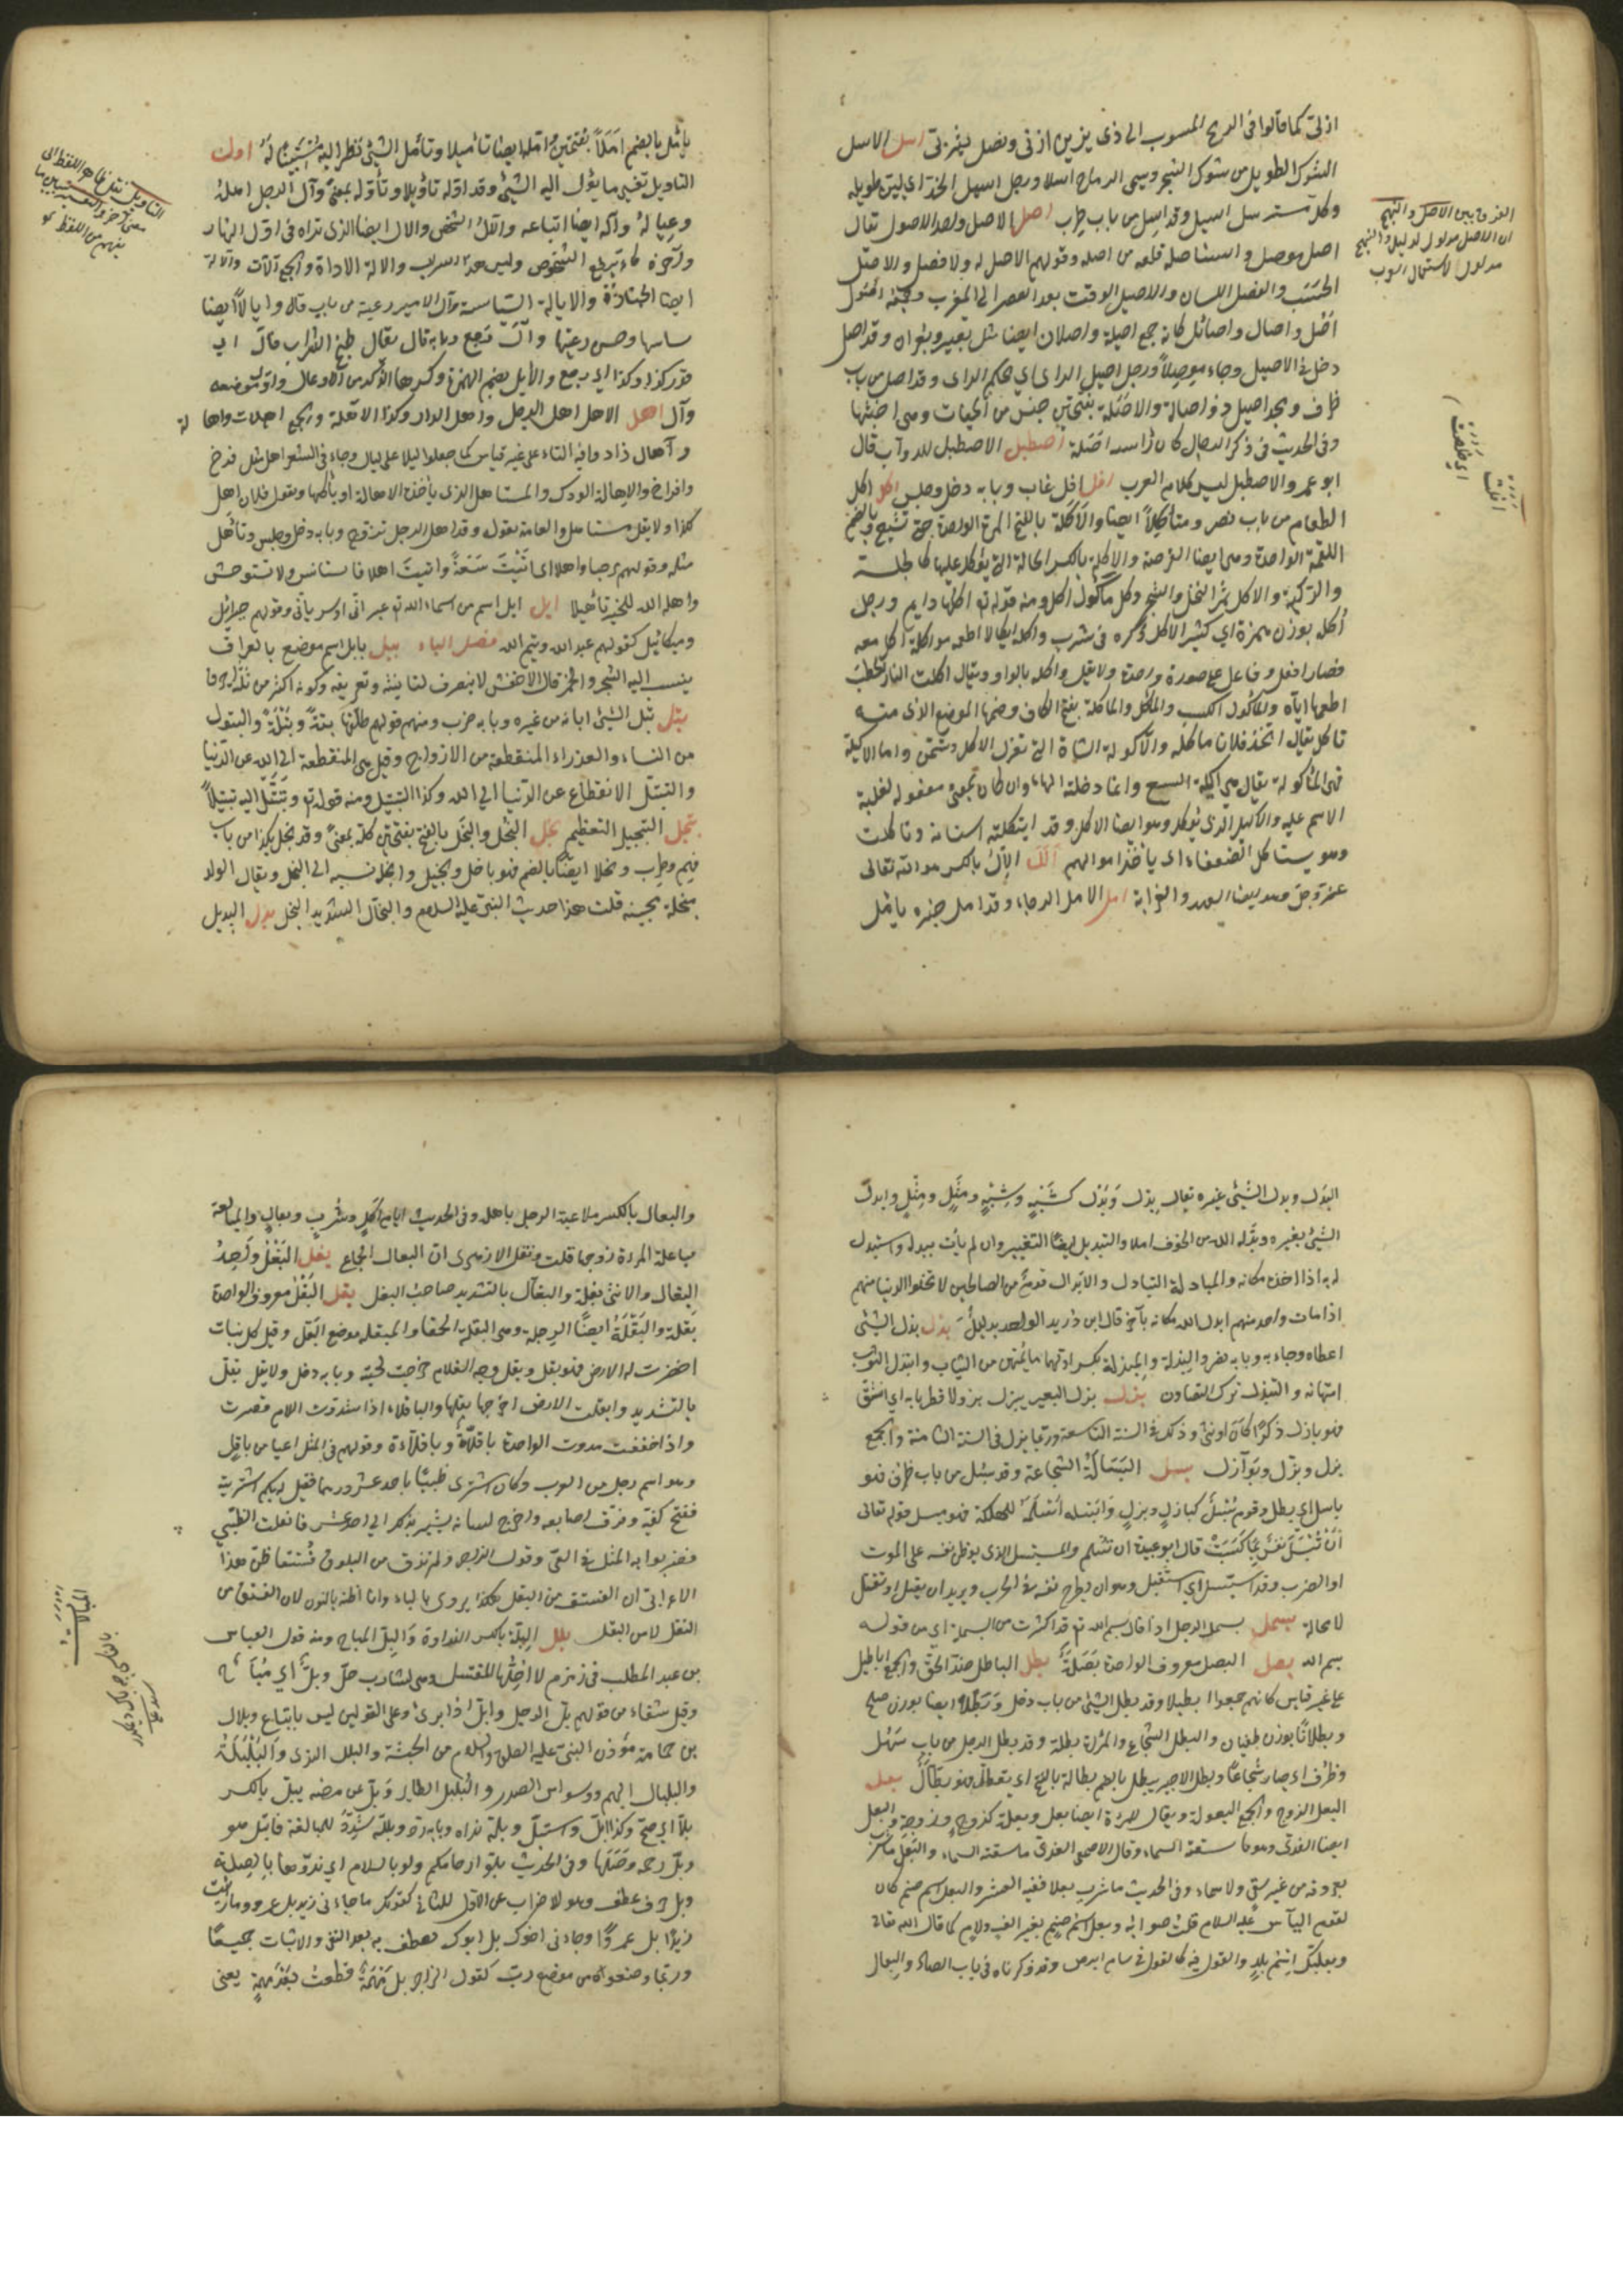 ازلي كما قالوا في الرمح المنسوب الى ذي يزن ازني ونصل يثربي اسل الاسل
الشوك الطويل من شوك الشجر وسمي الرماح اسلا ورجل اسيل الخد اي لين طويله
وكل مسترسل اسيل وقد اسل من باب ظرف اصل الاصل واحد الاصول يقال
اصل موصل واستاصله قلعه من اصله وقولهم لا اصل له ولا فصل الاصل
الحسب والفصل اللسان والاصيل الوقت بعد العصر الى المغرب وجمعه اصل
اصل واصال واصائل كانه جمع اصيلة واصلان ايضا مثل بعير وبعران وقد اصل
دخل في الاصيل وجاء موصلا ورجل اصيل الراي اي محكم الراي وقد اصل من باب
ظرف ومجد اصيل ذو اصالة والاصلة بفتحتين جنس من الحيات وهي اخبثها
وفي الحديث في ذكر الدجال كان راسه اصلة اصطبل الاصطبل للدواب قال
ابو عمرو الاصطبل ليس كلام العرب افل افل غاب وبابه دخل وجلس اكل اكل
الطعام من باب نصر وماكلا ايضا والاكلة بالفتح المرة الواحدة حتى تشبع وبالضم
اللقمة الواحدة وهي ايضا القرصة والاكلة بالكسر الحالة التي يؤكل عليها كالجلسة
والركبة والاكل ثمر النخل والشجر وكل ماكول اكل ومنه قوله تع اكلها دايم ورجل
اكلة بوزن همزة اي كثير الاكل ذكره في شرب واكله ايكالا اطعمه وواكله اكل معه
فصار افعل وفاعل على صورة واحدة ولا يقل واكله بالواو ويقال اكلت النار الحطب
اطعمها اياه والماكول الكسب والماكل والماكلة بفتح الكاف وضمها الموضع الذي منه
تاكل يقال اتخذ فلان ماكلة والاكولة الشاة التي تعزل للاكل وتسمن واما الاكيلة
فهي الماكولة يقال هي اكيلة السبع وانما دخلته الهاء وان كان بمعنى مفعولة لغلبة
الاسم عليه والاكيل الذي يؤكل وهو ايضا الآكل وقد ايتكلت اسنانه وتاكلت
وهو يستاكل الضعفاء اي ياخذ اموالهم ألل الإل بالكسر هو الله تعالى
عز وجل وهو ايضا العهد والقرابة امل الامل الرجاء وقد امل خيره يامل
الفرق بين الاصل والنهج
ان الاصل مدلول لدليل والنهج
مدلول لاستعمال العرب
يامل بالضم املا بفتحتين وامله ايضا تاميلا وتامل الشيء نظر اليه مستبينا له اول
التاويل تفسير ما يؤل اليه الشيء وقد اوله تاويلا وتاوله بمعنى وآل الرجل اهله
وعياله وآله ايضا اتباعه والآل الشخص والآل ايضا الذي تراه في اول النهار
وآخره كانه يرفع الشخوص وليس هو السراب والآلة الاداة والجمع آلات والآلة
ايضا الجنازة والايالة السياسة وآل الامير رعيته من باب قال وايالا ايضا
ساسها وحسن رعيتها وآل رجع وبابه قال يقال طبخ الشراب فآل الى
قدر كذا وكذا اي رجع والايل بضم الهمزة وكسرها الذكر من الاوعال واول موضعه
وآل اهل الاهل اهل الرجل واهل الدار وكذا الاهلة والجمع اهلات واهلات
وآهال زادوا فيه التاء على غير قياس كما جمعوا ليلا على ليال وجاء في الشعر اهل مثل فرخ
وافراخ والاهالة الودك والمستاهل الذي ياخذ الاهالة او ياكلها وتقول فلان اهل
لكذا ولا يقل مستاهل والعامة تقول وقد اهل الرجل تزوج وبابه دخل وجلس وتاهل
مثله وقولهم مرحبا واهلا اي اتيت سعة واتيت اهلا فاستانس ولا تستوحش
واهله الله للخير تاهيلا ايل ايل اسم من اسماء الله تع عبراني او سرياني وقولهم جبرائيل
وميكائيل كقولهم عبد الله وتيم الله فصل الباء ببل بابل اسم موضع بالعراق
ينسب اليه السحر والخمر قال الاخفش لا ينصرف لتانيثه وتعريفه وكونه اكثر من ثلثة احرف
بتل بتل الشيء ابانه من غيره وبابه ضرب ومنهم قولهم طلقها بتة وبتلة والبتول
من النساء العذراء المنقطعة من الازواج وقيل هي المنقطعة الى الله عن الدنيا
والتبتل الانقطاع عن الدنيا الى الله وكذا التبتيل ومنه قوله تع وتبتل اليه تبتيلا
بجل التبجيل التعظيم بخل البخل والبخل بالفتح وبفتحتين كله بمعنى وقد بخل بكذا من باب
فهم وطرب وبخلا ايضا بالضم فهو باخل وبخيل وابخله نسبه الى البخل ويقال الولد
مبخلة مجبنة قلت هذا حديث النبي عليه السلام والبخال الشديد البخل بدل البديل
التاويل نقل ظاهر اللفظ الى
معنى آخر والتفسير بين ما
يفهم من اللفظ
البدل وبدل الشيء غيره يقال بدل وبدل كشبه وشبه ومثل ومثل وابدل
الشيء بغيره وبدله الله من الخوف امنا والتبديل ايضا التغيير وان لم يات ببدله واستبدل
به اذا اخذه مكانه والمبادلة التبادل والابدال قوم من الصالحين لا تخلوا الدنيا منهم
اذا مات واحد منهم ابدل الله مكانه بآخر قال ابن دريد الواحد بديل بذل بذل الشيء
اعطاه وجاد به وبابه نصر والبذلة والمبذلة بكسر اولهما ما يمتهن من الثياب وابتذل الثوب
امتهانه والتبذل ترك التصاون بزل بزل البعير يبزل بزولا فطر نابه اي انشق
فهو بازل ذكرا كان او انثى وذلك في السنة التاسعة وربما بزل في السنة الثامنة والجمع
بزل وبزل وبوازل بسل البسالة الشجاعة وقد بسل من باب ظرف فهو
باسل اي بطل وقوم بسل كبازل وبزل وابسله اسلمه للهلكة فهو مبسل قوله تعالى
ان تبسل نفس بما كسبت قال ابو عبيدة ان تسلم والمستبسل الذي يوطن نفسه على الموت
او الضرب وقد استبسل اي استقتل وهو ان يطرح نفسه في الحرب ويريد ان يقتل او يقتل
لا محالة بسمل بسمل الرجل اذا قال بسم الله تع قد اكثرت من البسملة اي من قوله
بسم الله بصل البصل معروف الواحدة بصلة بطل الباطل ضد الحق والجمع اباطيل
على غير قياس كانهم جمعوا ابطيلا وقد بطل الشيء من باب دخل وبطلا ايضا بوزن صلح
وبطلانا بوزن طغيان والبطل الشجاع والمراة بطلة وقد بطل الرجل من باب سهل
وظرف اي صار شجاعا وبطل الاجير يبطل بالضم بطالة بالفتح اي تعطل فهو بطال بعل
البعل الزوج والجمع البعولة ويقال للمراة ايضا بعل وبعلة كزوج وزوجة والبعل
ايضا العذي وهو ما سقته السماء وقال الاصمعي العذي ما سقته السماء والبعل ما شرب
بعروقه من غير سقي ولا سماء وفي الحديث ما شرب بعلا ففيه العشر والبعل اسم صنم كان
لقوم الياس عليه السلام قلت صوابه وبعل اسم صنم بغير الف ولام كما قال الله تعالى
وبعلبك اسم بلد والقول فيه كالقول في سام ابرص وقد ذكرناه في باب الصاد والبعال
والبعال بالكسر ملاعبة الرجل باهله وفي الحديث ايام اكل وشرب وبعال والمباعلة
مباعلة المراة زوجها قلت ونقل الازهري ان البعال الجماع بغل البغل واحد
البغال والانثى بغلة والبغال بالتشديد صاحب البغل بقل البقل معروف الواحدة
بقلة والبقلة ايضا الرجلة وهي البقلة الحمقا والمبقلة موضع البقل وقيل كل نبات
اخضرت له الارض فهو بقل وبقل وجه الغلام خرجت لحيته وبابه دخل ولا يقل بقل
بالتشديد وابقلت الارض اخرجها بقلها والباقلاء اذا شددت اللام قصرت
واذا خففت مددت الواحدة باقلاة وباقلاءة وقولهم في المثل اعيا من باقل
وهو اسم رجل من العرب وكان اشترى ظبيا باحد عشر درهما فقيل له بكم اشتريته
ففتح كفيه وفرق اصابعه واخرج لسانه يشير بذلك الى احد عشر فانفلت الظبي
فضربوا به المثل في العي وقول الراجز ولم تذق من البقول فستقا ظن هذا
الاعرابي ان الفستق من البقل هكذا يروى بالباء وانا اظنه بالنون لان الفستق من
النقل لا من البقل بلل البلة بالكسر النداوة والبل المباح ومنه قول العباس
بن عبد المطلب في زمزم لا احلها لمغتسل وهي لشارب حل وبل اي مباح
وقيل شفاء من قولهم بل الرجل وابل اذا برئ وعلى القولين ليس باتباع وبلال
بن حمامة مؤذن النبي عليه الصلوة والسلام من الحبشة والبلل الندى والبلبلة
والبلبال الهم ووسواس الصدر والبلبل الطاير وبل من مرضه يبل بالكسر
بلا اي صح وكذا ابل واستبل وبله نداه وبابه رد وبلله شدد للمبالغة فابتل هو
وبل رحمه وصلها وفي الحديث بلوا ارحامكم ولو بالسلام اي ندوها بالصلة
وبل حرف عطف وهو للاضراب عن الاول للثاني كقولك ما جاءني زيد بل عمرو وما رايت
زيدا بل عمروا وجاءني اخوك بل ابوك تعطف به بعد النفي والاثبات جميعا
وربما وضعوه من موضع رب كقول الراجز بل مهمه قطعت بعد مهمه يعني